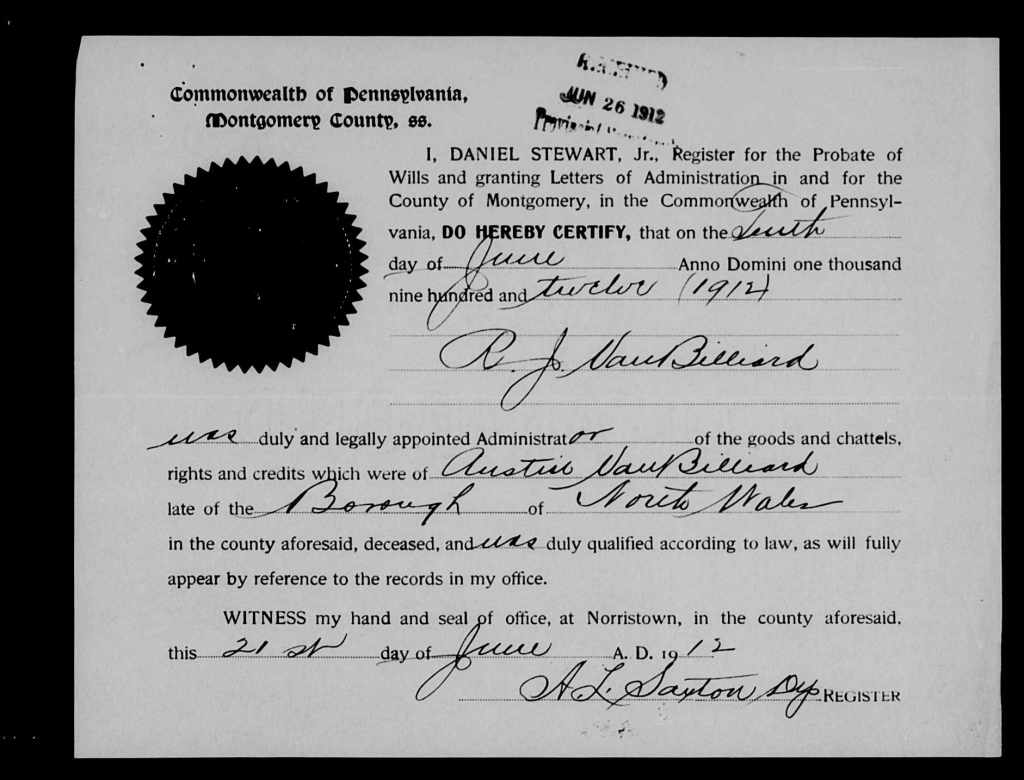 JUN 26 1912
Commonwealth of Pennsylvania,
Montgomery County, ss.
I, DANIEL STEWART, Jr., Register for the Probate of
Wills and granting Letters of Administration in and for the
County of Montgomery, in the Commonwealth of Pennsyl-
vania, DO HEREBY CERTIFY, that on the tenth
day of June Anno Domini one thousand
nine hundred and twelve (1912)
R. J. VanBilliard
was duly and legally appointed Administrator of the goods and chattels,
rights and credits which were of Austin VanBilliard
late of the Borough of North Wales
in the county aforesaid, deceased, and was duly qualified according to law, as will fully
appear by reference to the records in my office.
WITNESS my hand and seal of office, at Norristown, in the county aforesaid,
this 21 st day of June A. D. 1912
A L Saxton Dep REGISTER